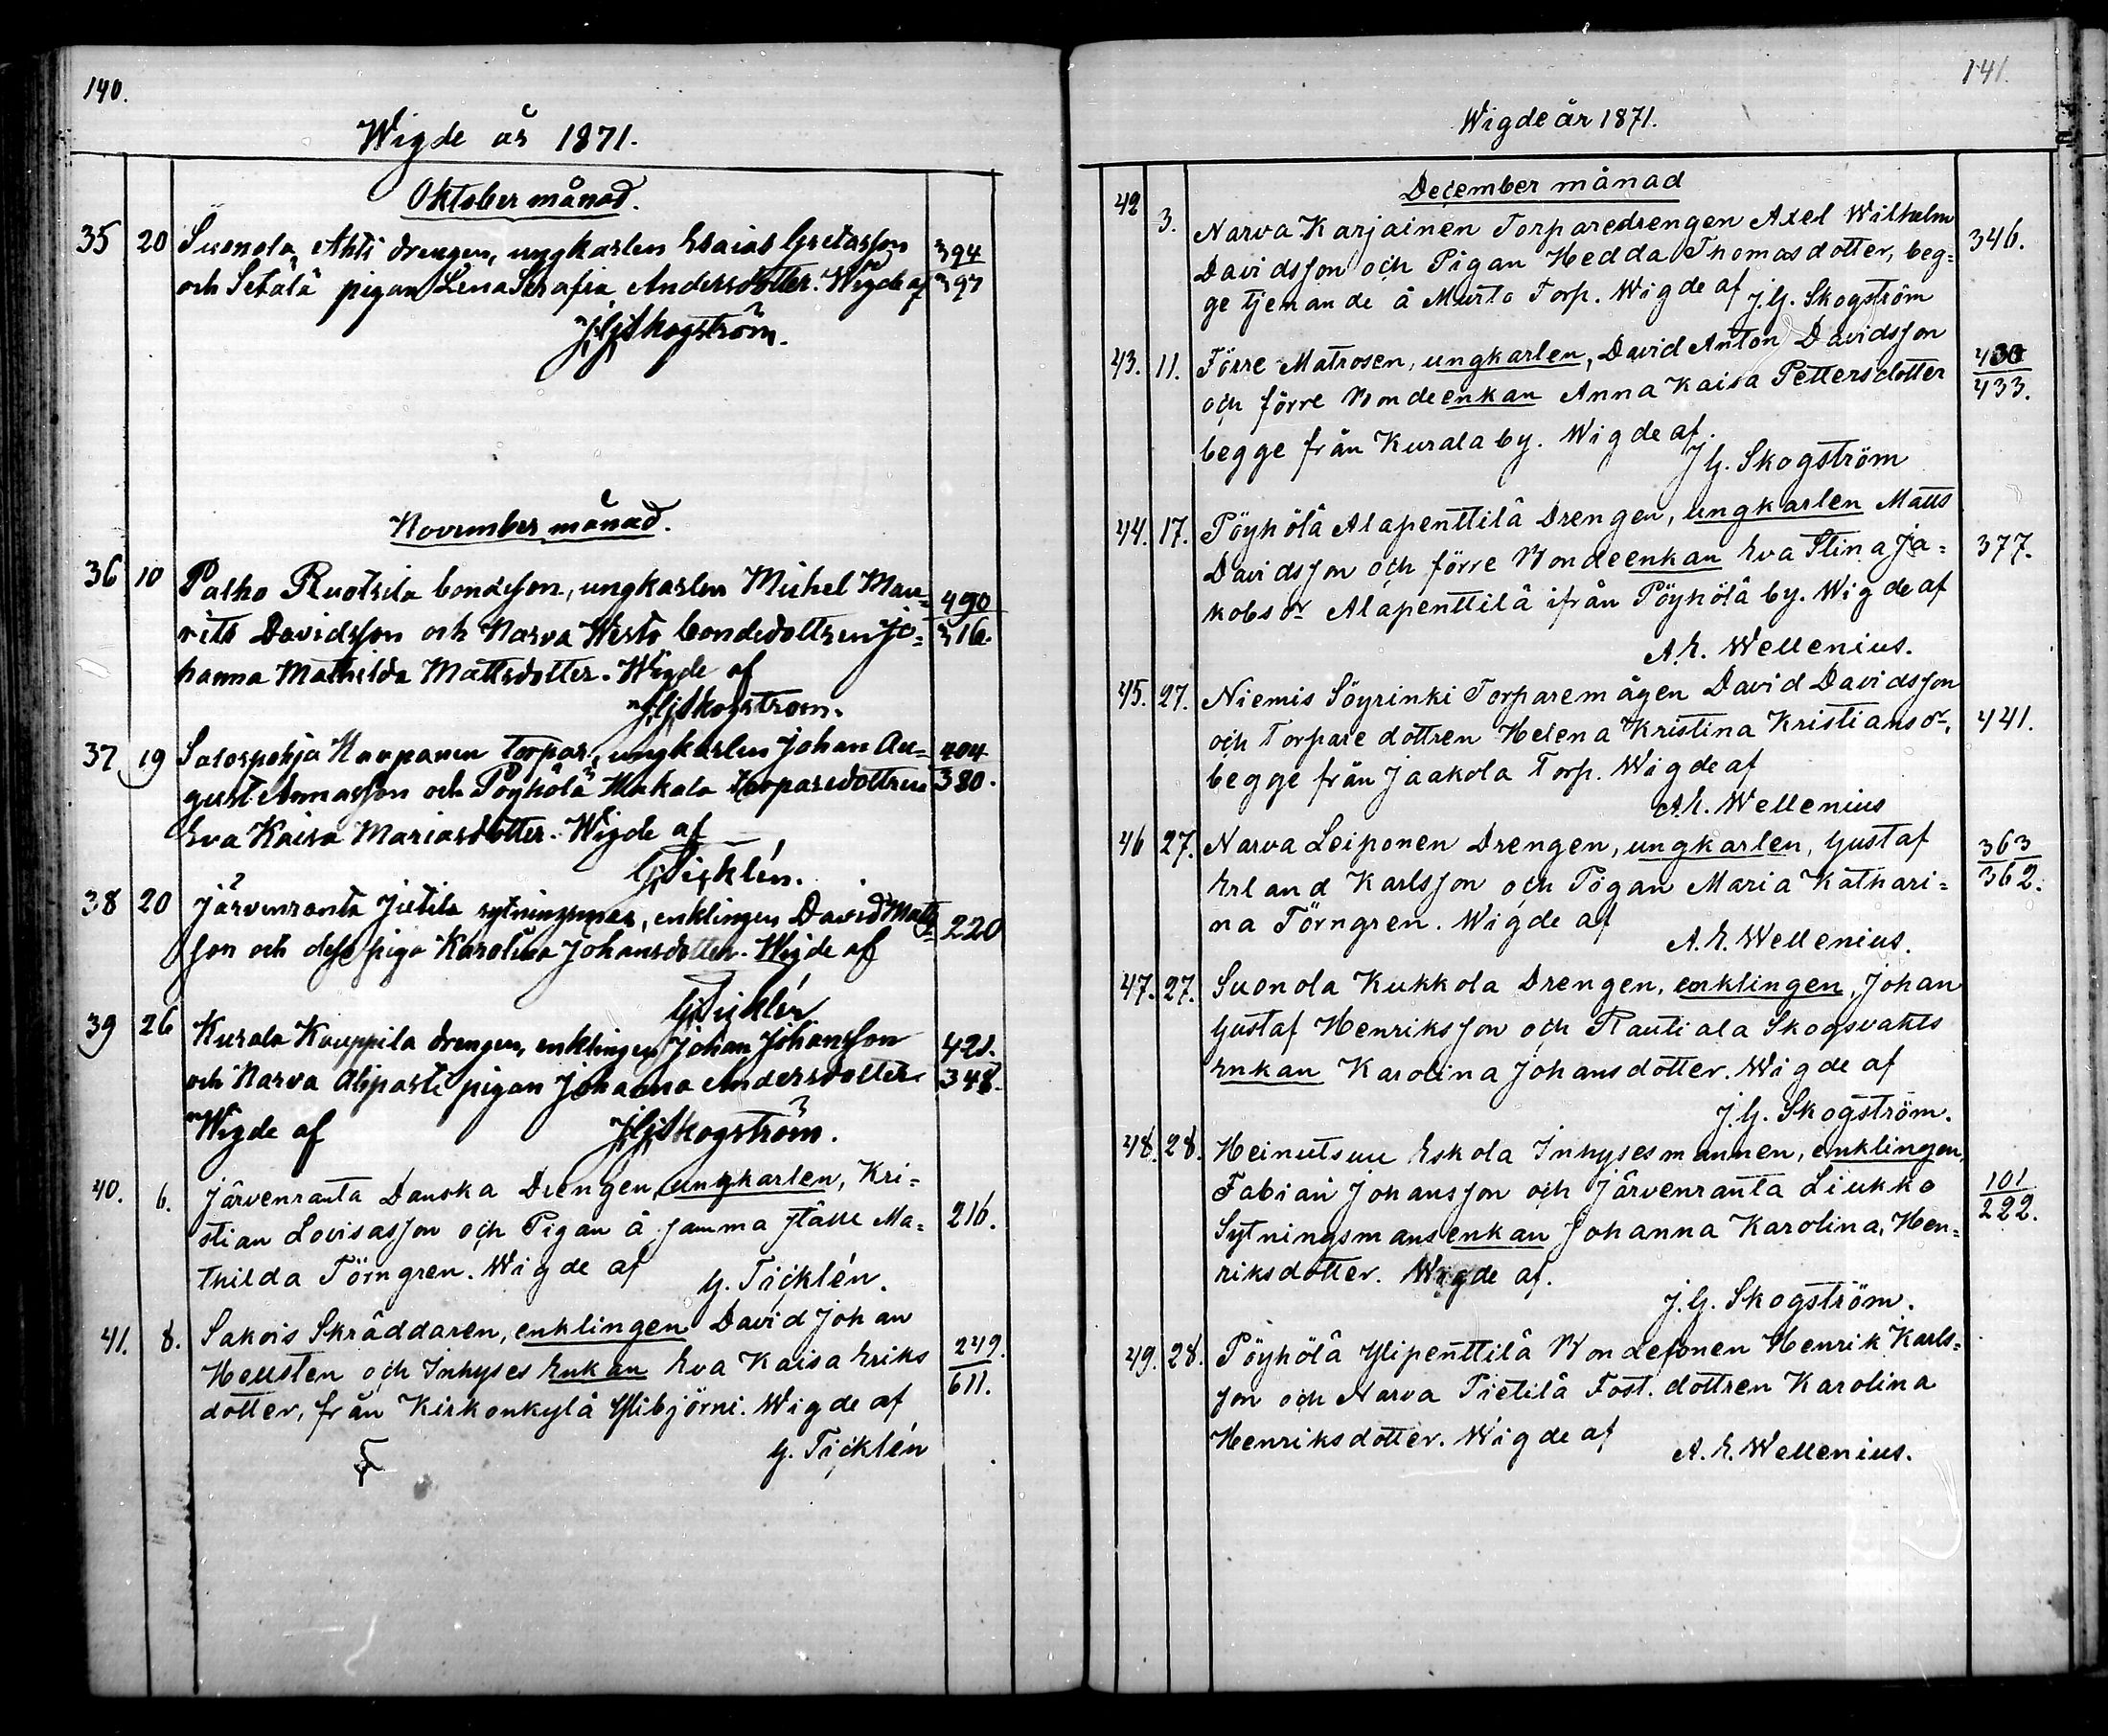 140.
Wigde år 1871.
Oktober månad.
35 20 Suonola, Ahti drengen, ungkarlen Esaias Gretasson 394
och Setälä pigan Lena Serafia Andersdotter. Wigde af 397
J. G. Skogström.
November månad.
36 10 Palho Ruotsila bondeson, ungkarlen Michel Mau= 490
rits Davidsson och Narva Westo bondedottren Jo= 316.
hanna Mathilda Mattsdotter. Wigde af
J. G. Skogström.
37 19 Salospohja Torpar, ungkarlen Johan Au= 404
gust Annasson och Pöyhölä Torparedottren 380.
Eva Kaisa Mariasdotter. Wigde af
G. Ticklén.
38 20 Järvenranta sytningsman, enklingen David Matts= 220
son och dess piga Karolina Johansdotter. Wigde af
G. Ticklén
39 26 Kurala Kauppila drengen, enklingen Johan Johansson 421.
och Narva Alipasti pigan Johanna Andersdotter 348.
Wigde af J. G. Skogström.
40. 6. Järvenranta Danska Drengen, ungkarlen, Kri=
stian Lovisasson och Pigan å samma ställe Ma= 216.
thilda Törngren. Wigde af G. Ticklén.
41. 8. Sakois Skräddaren, enklingen David Johan
Hellsten och Inhyses Enkan Eva Kaisa Eriks 249.
dotter, från Kirkonkylä Ylibjörni. Wigde af 611.
G. Ticklén
141.
Wigde år 1871.
December månad
42 3. Narva Karjainen Torparedrengen Axel Wilhelm
Davidsson och Pigan Hedda Thomasdotter, beg= 346.
ge tjenande å Murto Torp. Wigde af J. G. Skogström
43. 11. Förre Matrosen, ungkarlen, David Anton Davidsson 430
och förre Bondeenkan Anna Kaisa Pettersdotter 433.
begge från Kurala by. Wigde af.
J. G. Skogström
44. 17. Pöyhölä Alapenttilä Drengen, ungkarlen Matts
Davidsson och förre Bondeenkan Eva Stina Ja= 377.
kobsdr Alapenttilä ifrån Pöyhölä by. Wigde af
A. E. Wellenius.
45. 27. Niemis Söyrinki Torparemågen David Davidsson
och Torpare dottren Helena Kristina Kristiansdr, 441.
begge från Jaakola Torp. Wigde af
A. E. Wellenius
46 27. Narva Leiponen Drengen, ungkarlen, Gustaf 363
Erland Karlsson och Pigan Maria Kathari= 362.
na Törngren. Wigde af
A. E. Wellenius.
47. 27. Suonola Kukkola Drengen, enklingen, Johan
Gustaf Henriksson och Rautiala Skogsvakts
Enkan Karolina Johansdotter. Wigde af
J. G. Skogström.
48. 28. Heinutsuu Eskola Inhysesmannen, enklingen,
Fabian Johansson och Järvenranta Liukko 101
Sytningsmansenkan Johanna Karolina, Hen= 222.
riksdotter. Wigde af.
J. G. Skogström.
49. 28. Pöyhölä Ylipenttilä Bondesonen Henrik Karls=
son och Narva Pietilä Fost. dottren Karolina
Henriksdotter. Wigde af
A. E. Wellenius.